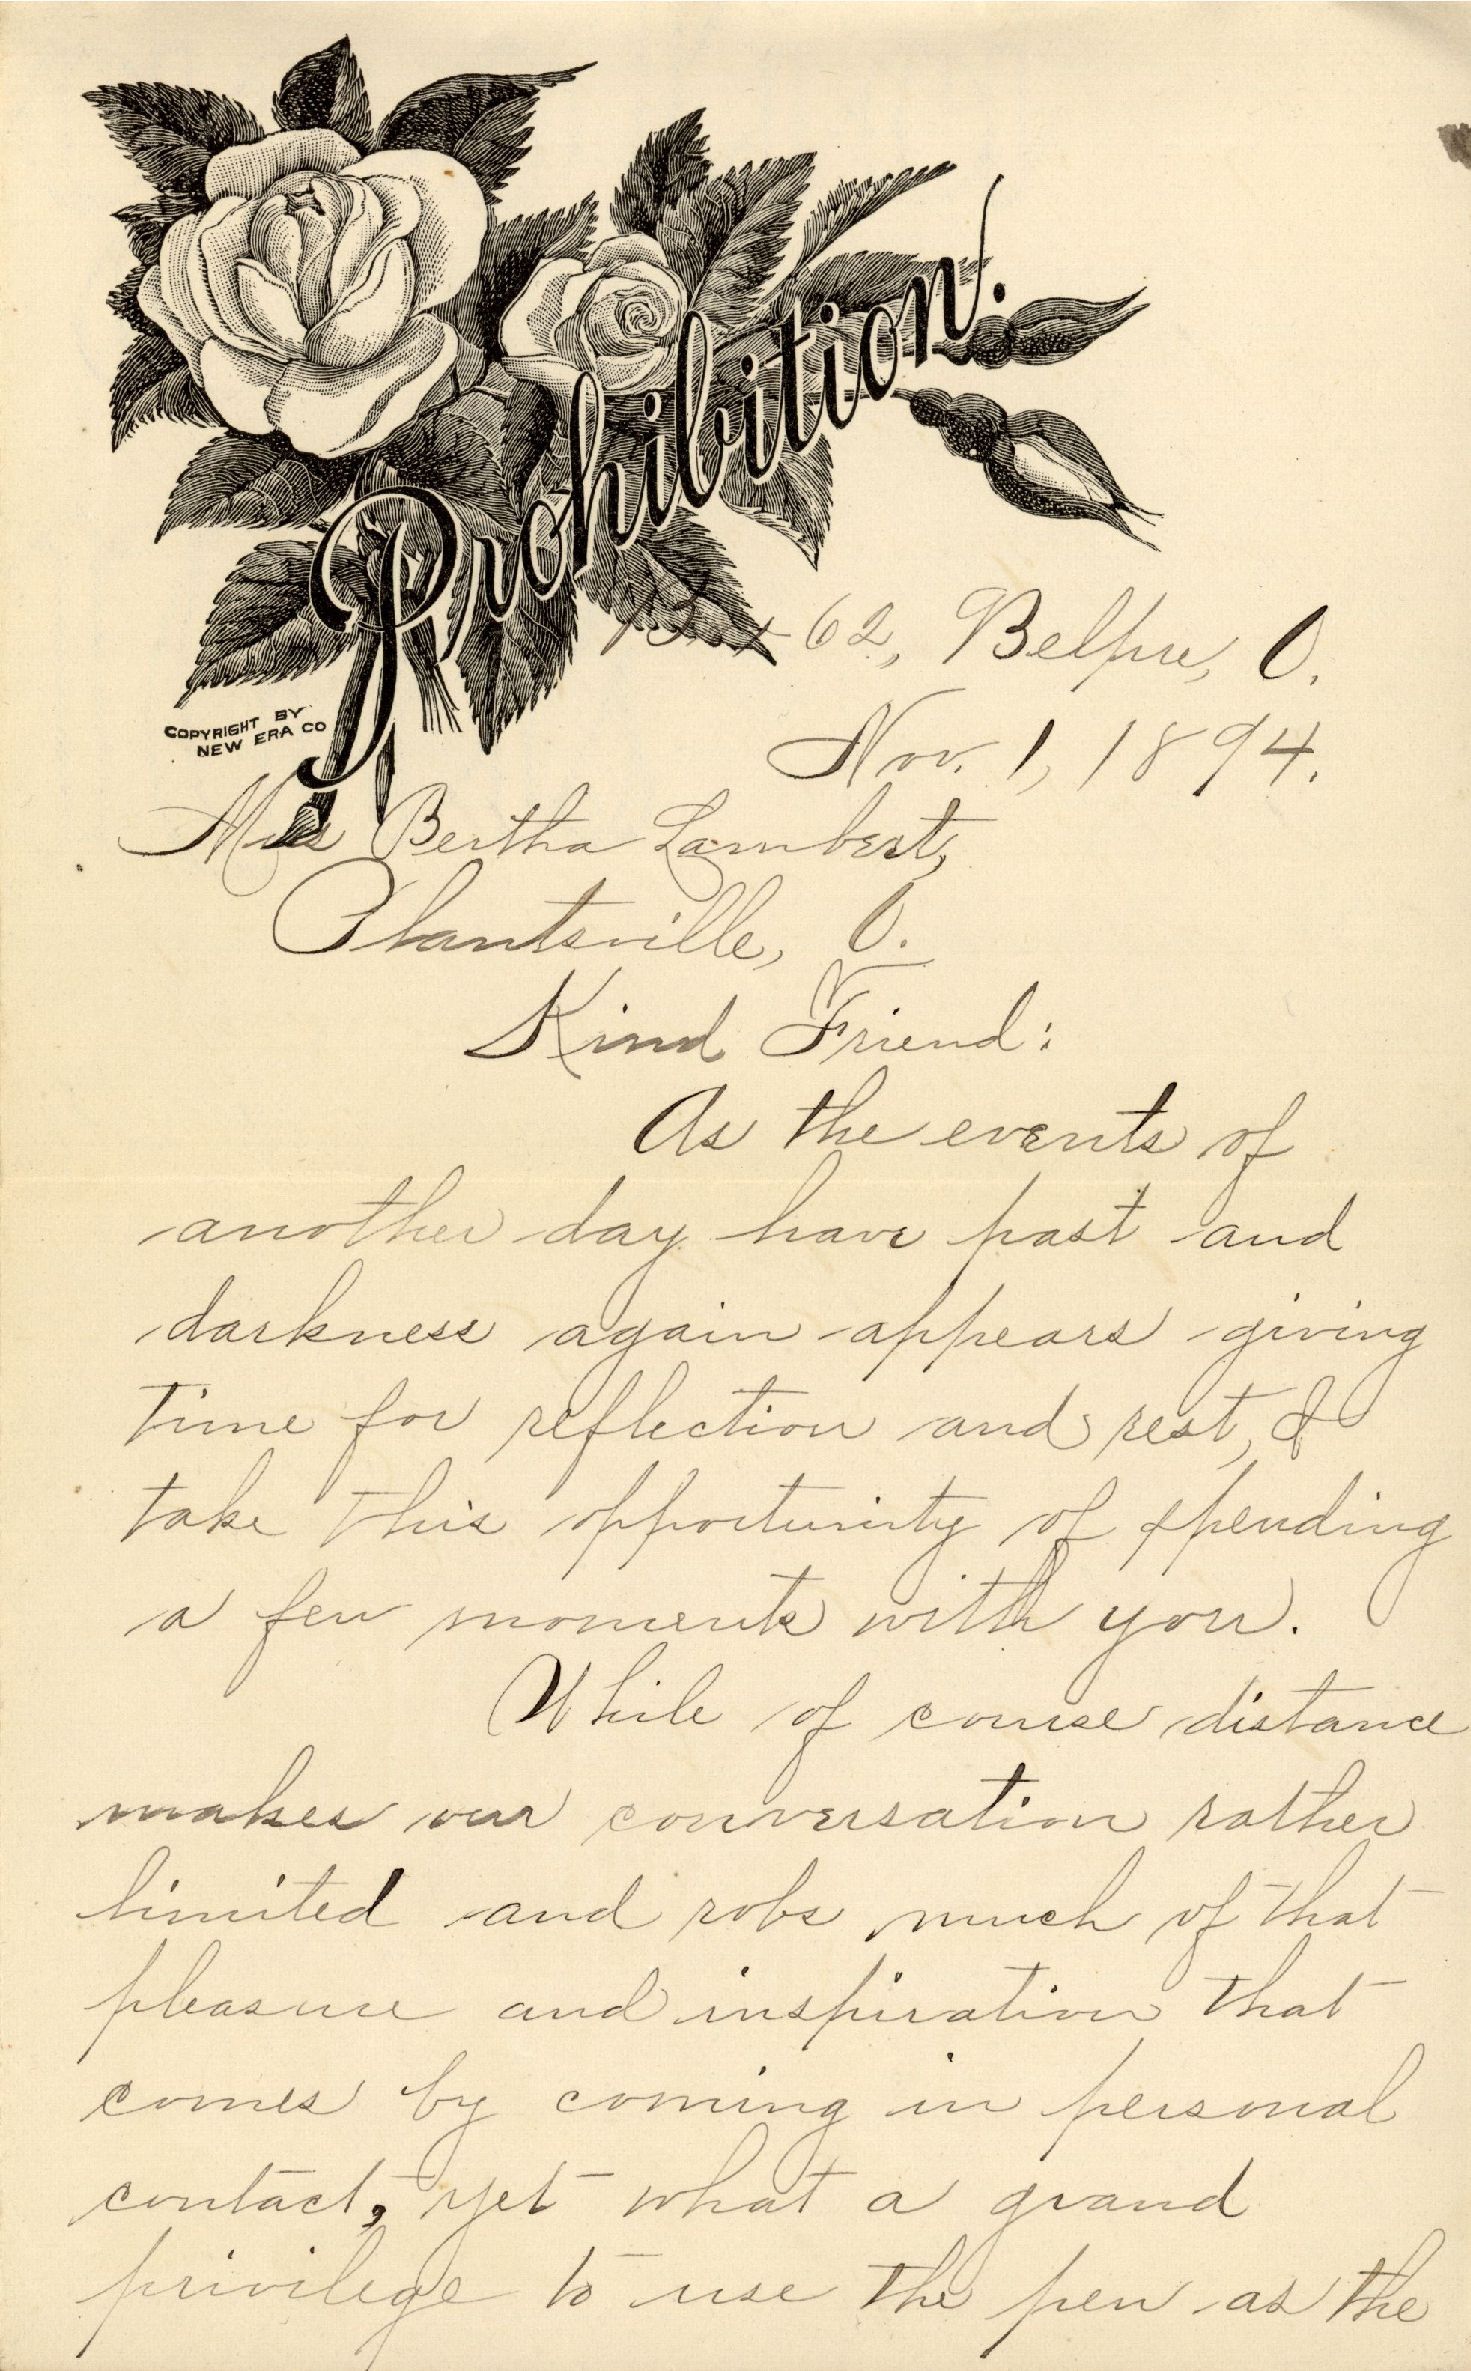 Prohibition.
COPYRIGHT BY
NEW ERA CO
Box 62, Belpre, O.
Nov. 1, 1894.
Miss Bertha Lambert,
Plantsville, O.
Kind Friend:
As the events of
another day have past and
darkness again appears giving
time for reflection and rest, I
take this opportunity of spending
a few moments with you.
While of course distance
makes our conversation rather
limited and robs much of that
pleasure and inspiration that
comes by coming in personal
contact, yet what a grand
privilege to use the pen as the